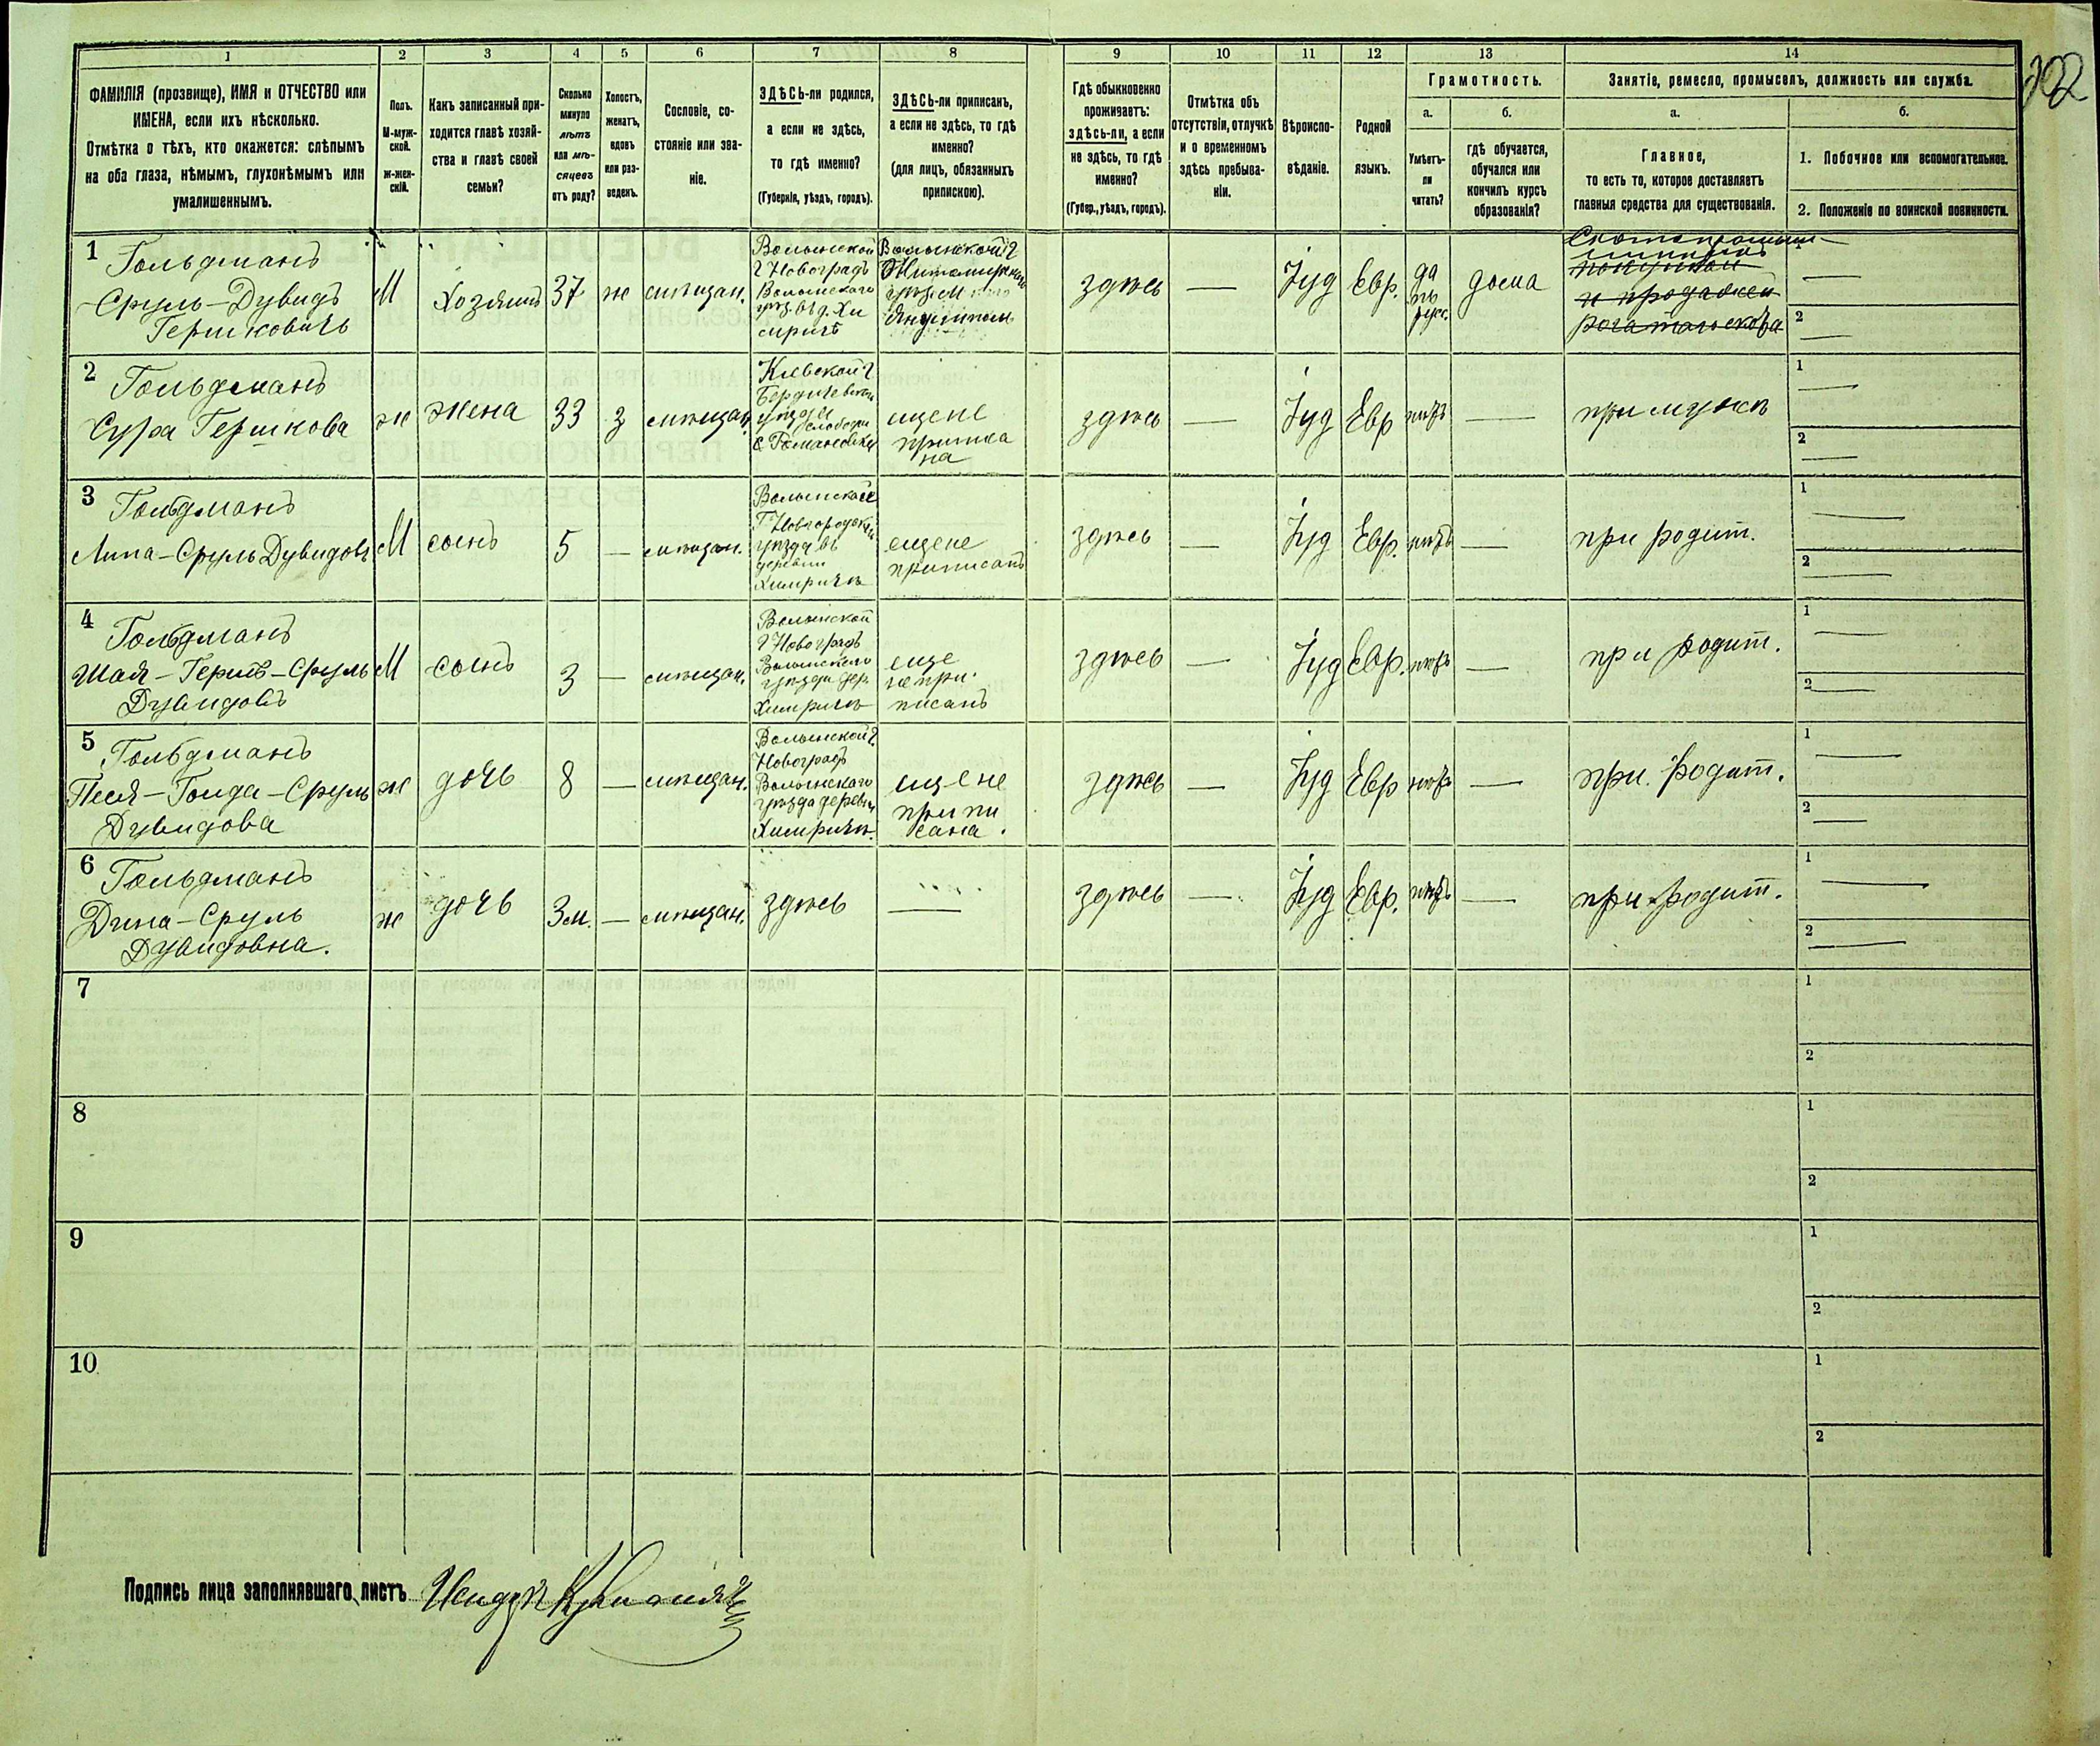 1 2 3 4 5 6 7 8 9 10 11 12 13 14
ФАМИЛІЯ (прозвище), ИМЯ и ОТЧЕСТВО или
ИМЕНА, если ихъ нѣсколько.
Отмѣтка о тѣхъ, кто окажется: слѣпымъ
на оба глаза, нѣмымъ, глухонѣмымъ или
умалишеннымъ.
Полъ.
М-муж-
ской.
Ж-жен-
скій.
Какъ записанный при-
ходится главѣ хозяй-
ства и главѣ своей
семьи?
Сколько
минуло
лѣтъ
или мѣ-
сяцевъ
отъ роду?
Холостъ,
женатъ,
вдовъ
или раз-
веденъ.
Сословіе, со-
стояніе или зва-
ніе.
ЗДѢСЬ-ли родился,
а если не здѣсь,
то гдѣ именно?
(Губернія, уѣздъ, городъ).
ЗДѢСЬ-ли приписанъ,
а если не здѣсь, то гдѣ
именно?
(для лицъ, обязанныхъ
припискою).
Гдѣ обыкновенно
проживаетъ:
здѣсь-ли, а если
не здѣсь, то гдѣ
именно?
(Губер., уѣздъ, городъ).
Отмѣтка объ
отсутствіи, отлучкѣ
и о временномъ
здѣсь пребыва-
ніи.
Вѣроиспо-
вѣданіе.
Родной
языкъ.
Грамотность.
а.
Умѣетъ-
ли
читать?
б.
гдѣ обучается,
обучался или
кончилъ курсъ
образованія?
Занятіе, ремесло, промыселъ, должность или служба.
а.
Главное,
то есть то, которое доставляетъ
главныя средства для существованія.
б.
1. Побочное или вспомогательное.
2. Положеніе по воинской повинности.
1
Гольдманъ
Сруль-Дувидъ
Гершковичъ
М
Хозяинъ
37
ж
мѣщан.
Волынской
г Новоградъ
Волынскаго
уѣз. въ д. Хи
мричѣ
Волынской г
Житомирскаго
уѣз. м
Янушполь
здѣсь
—
Іуд
Евр.
да
по
русс.
дома
Скотопромыш-
ленникъ
покупкой
и продажей
рогатаго скота
1 —
2 —
2
Гольдманъ
Сура Гершкова
ж
жена
33
з
мѣщан.
Кіевской г
Бердичевскаго
уѣзда
слободы
Романовки
еще не
приписа
на
здѣсь
—
Іуд
Евр
нѣтъ
—
при мужѣ
1 —
2 —
3
Гольдманъ
Липа-Сруль Дувидовъ
М
сынъ
5
—
мѣщан.
Волынской
уѣзда въ
деревни
Химричѣ
еще не
приписанъ
здѣсь
—
Іуд
Евр.
нѣтъ
—
при родит.
1 —
2 —
4
Гольдманъ
Шая-Гершъ-Сруль
Дувидовъ
М
сынъ
3
—
мѣщан.
Волынской
г Новоградъ
Волынскаго
уѣзда дер.
Химричѣ
еще
не при-
писанъ
здѣсь
—
Іуд
Евр.
нѣтъ
—
при родит.
1 —
2 —
5
Гольдманъ
Песя-Голда-Сруль
Дувидова
ж
дочь
8
—
мѣщан.
Волынской г.
Новоградъ
Волынскаго
уѣзда деревни
Химричѣ.
еще не
припи
сана.
здѣсь
—
Іуд
Евр
нѣтъ
—
при родит.
1 —
2 —
6
Гольдманъ
Дина-Сруль
Дувидовна.
ж
дочь
3м.
—
мѣщан.
здѣсь
—
здѣсь
—
Іуд
Евр.
нѣтъ
—
при родит.
1 —
2 —
7
1
2
8
1
2
9
1
2
10
1
2
Подпись лица заполнявшаго листъ